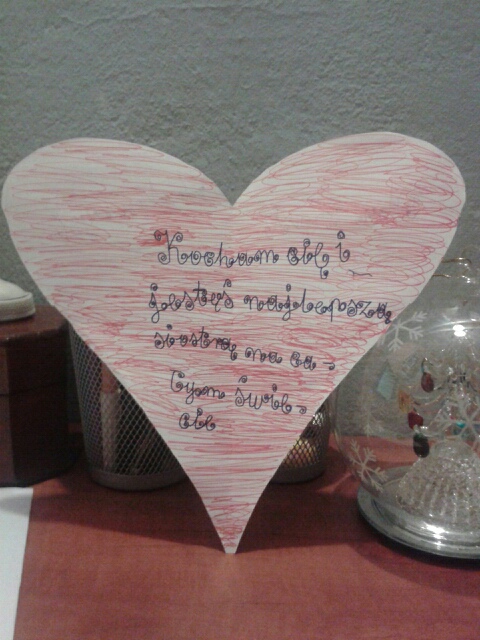 Kocham cię i
jesteś najlepszą
siostrą na ca-
łym świe-
cie